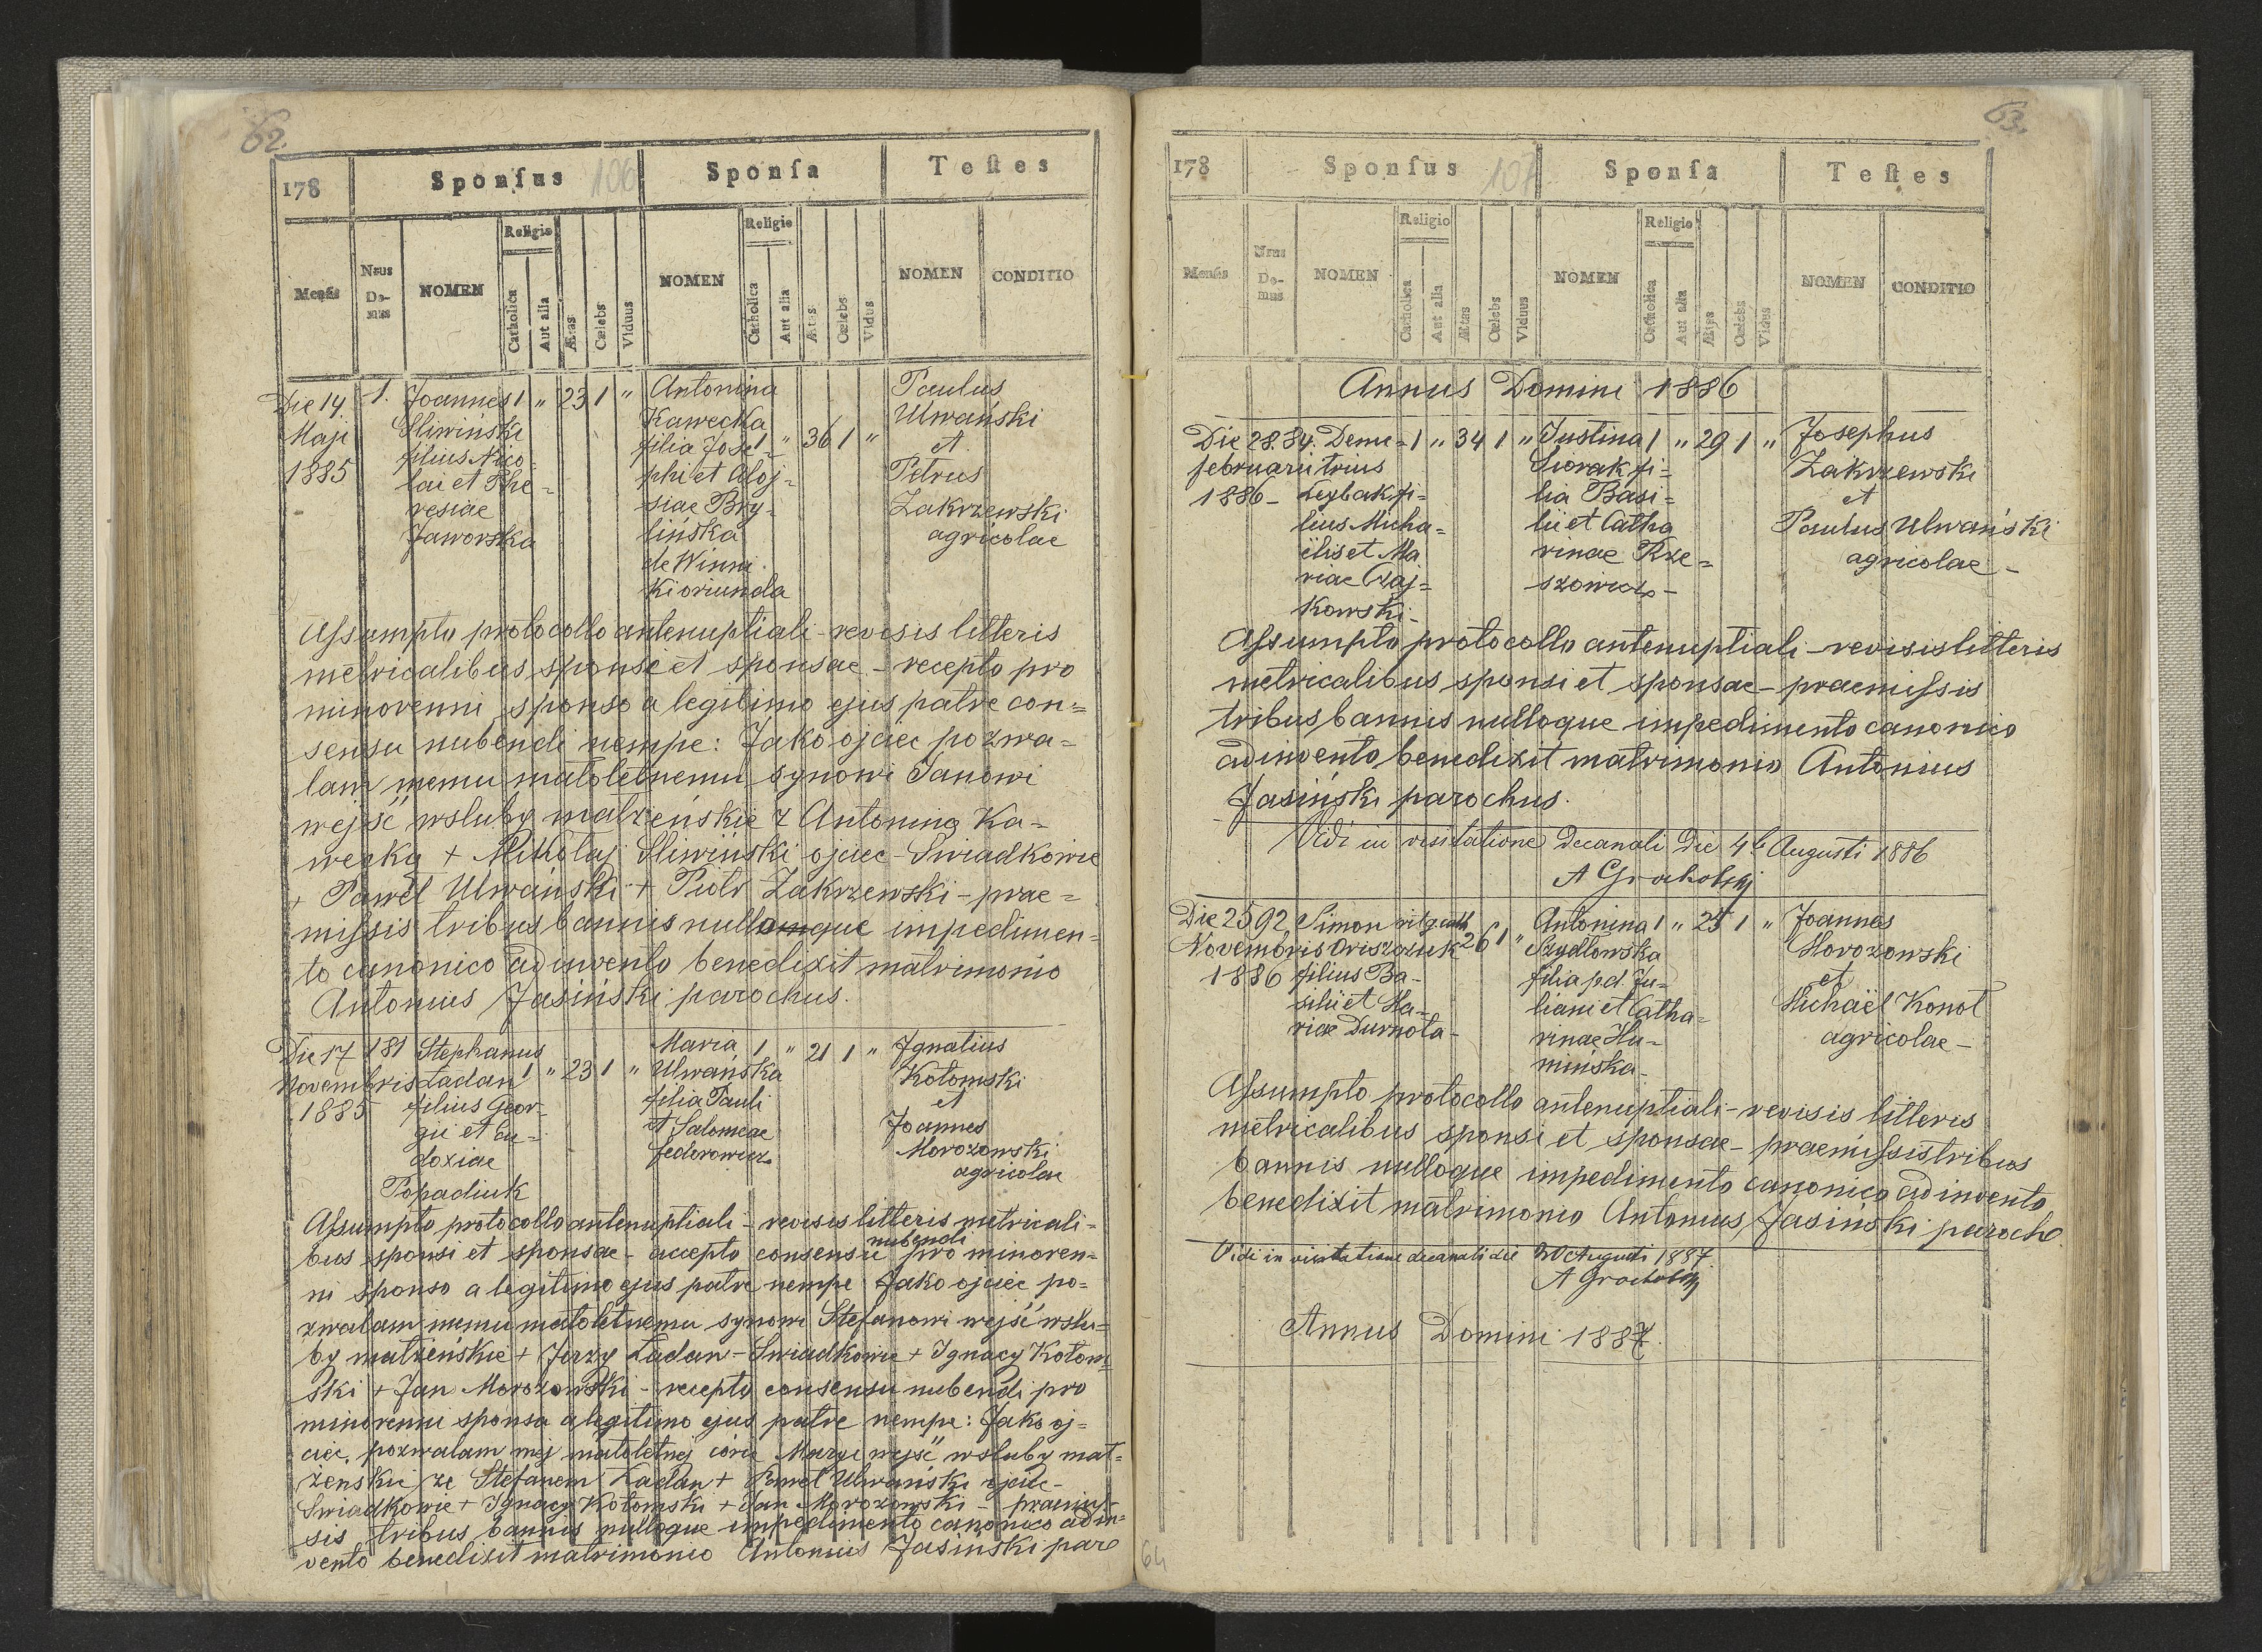 62.
178
Sponſus
106
Sponſa
Teſtes
Menſis
Nrus Do-mus
NOMEN
Religio
Catholica
Aut alia
Ætas
Cœlebs
Viduus
NOMEN
Religio
Catholica
Aut alia
Ætas
Cœlebs
Vidus
NOMEN
CONDITIO
Die 14
Maji
1885
1.
Joannes
Sliwiński
filius Nico-
lai et The-
resiae
Jaworska
1 " 23 1 "
Antonina
Kawecka
filia Jose-
phi et Aloj-
siae Bry-
lińska
de Winni-
ki oriunda
1 " 36 1 "
Paulus
Ulwański
et
Petrus
Zakrzewski
agricolae
Assumpto protocollo antenuptiali - revisis litteris
metricalibus sponsi et sponsae - recepto pro
minorenni sponso a legitimo ejus patre con=
sensu nubendi nempe: Jako ojciec pozwa=
lam memu małoletnemu synowi Janowi
wejść wsluby małżeńskie z Antoniną Ka-
wecką + Mikołaj Sliwiński ojciec - Swiadkowie
+ Paweł Ulwański + Piotr Zakrzewski - prae=
missis tribus bannis nulloque impedimen-
to canonico adinvento benedixit matrimonio
Antonius Jasiński parochus.
Die 17
Novembris
1885
181
Stephanus
Ładan
filius Geor-
gii et Eu-
doxiae
Popadiuk
1 " 23 1 "
Maria
Ulwańska
filia Pauli
et Salomeae
Fedorowicz
1 " 21 1 "
Ignatius
Kołomski
et
Joannes
Morozowski
agricolae
Assumpto protocollo antenuptiali - revisis litteris metricali-
bus sponsi et sponsae - accepto consensu nubendi pro minoren=
ni sponso a legitimo ejus patre nempe Jako ojciec po-
zwalam memu małoletnemu synowi Stefanowi wejść wslu=
by małżeńskie + Jerzy Ładan - Swiadkowie + Ignacy Kołom
ski + Jan Morozowski - recepto consensu nubendi pro
minorenni sponsa a legitimo ejus patre nempe: Jako oj=
ciec pozwalam mej małoletnej córce Maryi wejść wsluby mał=
żenskie ze Stefanem Ładan + Paweł Ulwański ojciec -
Swiadkowie + Ignacy Kołomski + Jan Morozowski - praemis-
sis tribus bannis nulloque impedimento canonico adin=
vento benedixit matrimonio Antonius Jasiński paro
63.
178
Sponſus
107
Sponſa
Teſtes
Menſis
Nrus Do-mus
NOMEN
Religio
Catholica
Aut alia
Ætas
Cœlebs
Viduus
NOMEN
Religio
Catholica
Aut alia
Ætas
Cœlebs
Vidus
NOMEN
CONDITIO
Annus Domini 1886
Die 28.
februarii
1886 -
84.
Deme-
trius
Leybak fi=
lius Micha=
ëlis et Ma
riae Czaj=
kowski -
1 " 34 1 "
Justina
Siorak fi=
lia Basi=
lii et Catha
rinae Rze=
szowicz -
1 " 29 1 "
Josephus
Zakrzewski
et
Paulus Ulwański
agricolae -
Assumpto protocollo antenuptiali - revisis litteris
metricalibus sponsi et sponsae - praemissis
tribus bannis nulloque impedimento canonico
adinvento benedixit matrimonio Antonius
Jasiński parochus.
Vidi in visitatione Decanali Die 4t Augusti 1886
A Grocholski
Die 25
Novembris
1886
92
Simon
Oriszczuk
filius Ba-
silii et Ma-
riae Durnota -
26 1 "
Antonina
Szydłowska
filia p.d. Ju=
liani et Catha=
rinae Hu-
mińska -
1 " 25 1 "
Joannes
Morozowski
et
Michaël Konot
agricolae -
Assumpto protocollo antenuptiali - revisis litteris
metricalibus sponsi et sponsae - praemissis tribus
bannis nulloque impedimento canonico adinvento
benedixit matrimonio Antonius Jasiński parocho
Vidi in visitatione decanali die Augusti 1887.
A Grocholski
Annus Domini 1887.
64